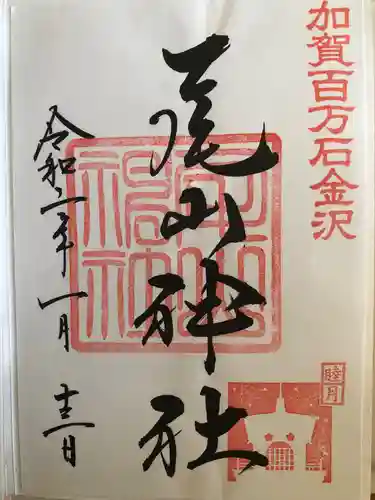 加賀百万石金沢
尾山神社
睦月
令和二年一月十三日